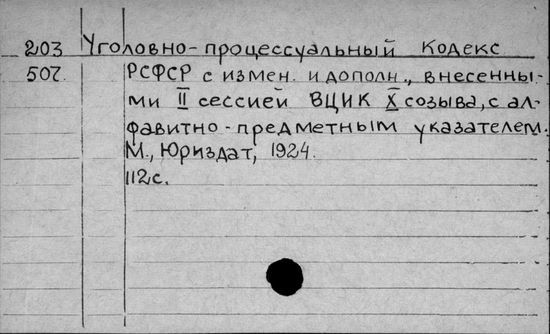 203 Уголовно-процессуальный кодекс
507. РСФСР с измен. и дополн., внесенны-
ми II сессией ВЦИК X созыва, с ал-
фавитно-предметным указателем.
М., Юриздат, 1924.
112с.